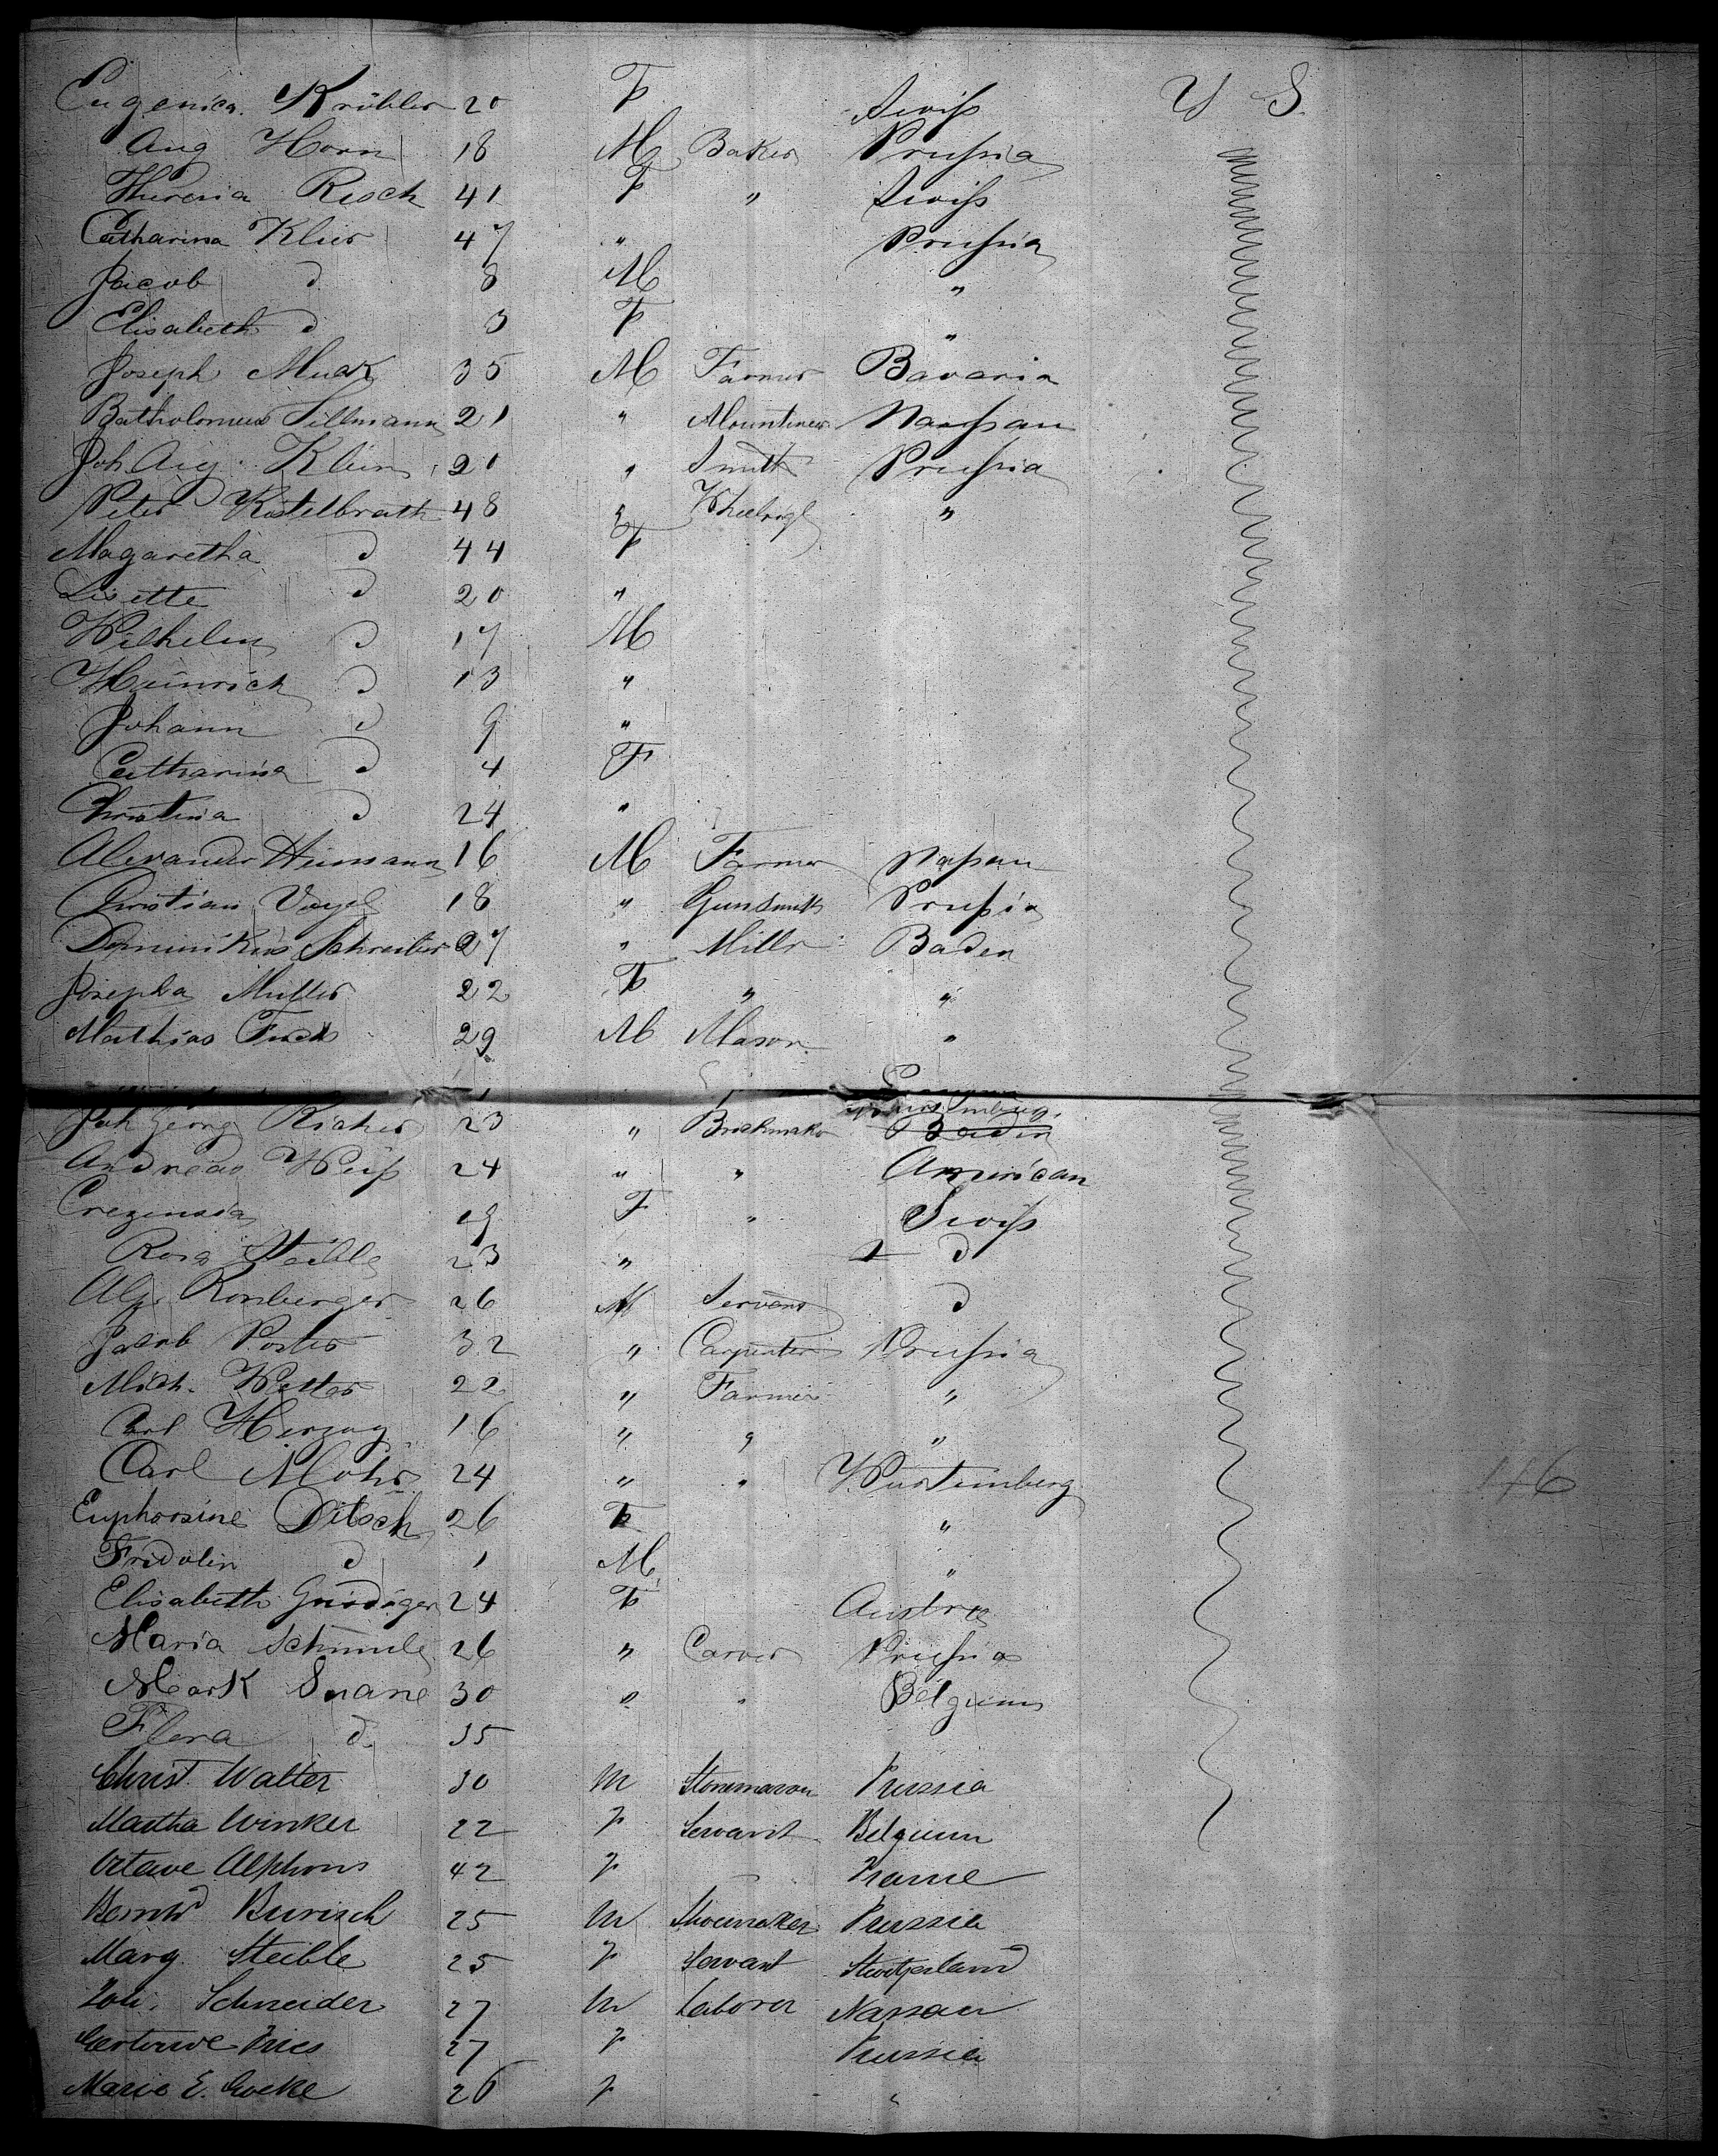 Eugenica Krübler 20 F Swiss U S.
Aug Horn 18 M Baker Prussia
Theresia Risch 41 F " Swiss
Catharina Klier 47 " Prussia
Jacob d 8 M "
Elisabeth d 3 F "
Joseph Muck 35 M Farmer Bavaria
Batholomeus Sillmann 21 " Mountineer Nassau
Joh Aug. Klein 20 " Smith Prussia
Peter Kistelbrath 48 " "
Magaretha d 44 F
Lisette d 20 "
Wilhelm d 17 M
Heinrich d 13 "
Johann d 9 "
Catharina d 4 F
Christina d 24 "
Alexander Hiemann 16 M Farmer Nassau
Christian Vogel 18 " Gunsmith Prussia
Dominikus Schreiber 27 " Millr Baden
Josepha Muller 22 F " "
Mathias Fuchs 29 M Mason "
Joh Georg Richer 23 " Baden
Andreas Weiss 24 " " American
Crezensia 19 F " Swiss
Rosa Steible 23 " d
Alp. Romberger 26 M Servant d
Jacob Porter 32 " Carpenter Prussia
Mich. Wetter 22 " Farmer "
Carl Herzog 16 " " "
Carl Mohr 24 " " Wurtemberg
Euphorsine Ditsch 26 F "
Fridolin d 1 M "
Elisabeth 24 F Austria
Maria 26 " Carver Prussia
Mark Suane 30 " " Belgium
Flora d. 35
Christ. Walter 30 M Stonemason Prussia
Martha Winker 22 F Servant Belgium
Octave Alphons 42 F France
Bernhd Burisch 25 M Shoemaker Prussia
Marg. Steible 25 F Servant Switzerland
Joh. Schneider 27 M Laborer Nassau
Gertrude Fries 27 F Prussia
Marie E. Goeke 26 F "
146